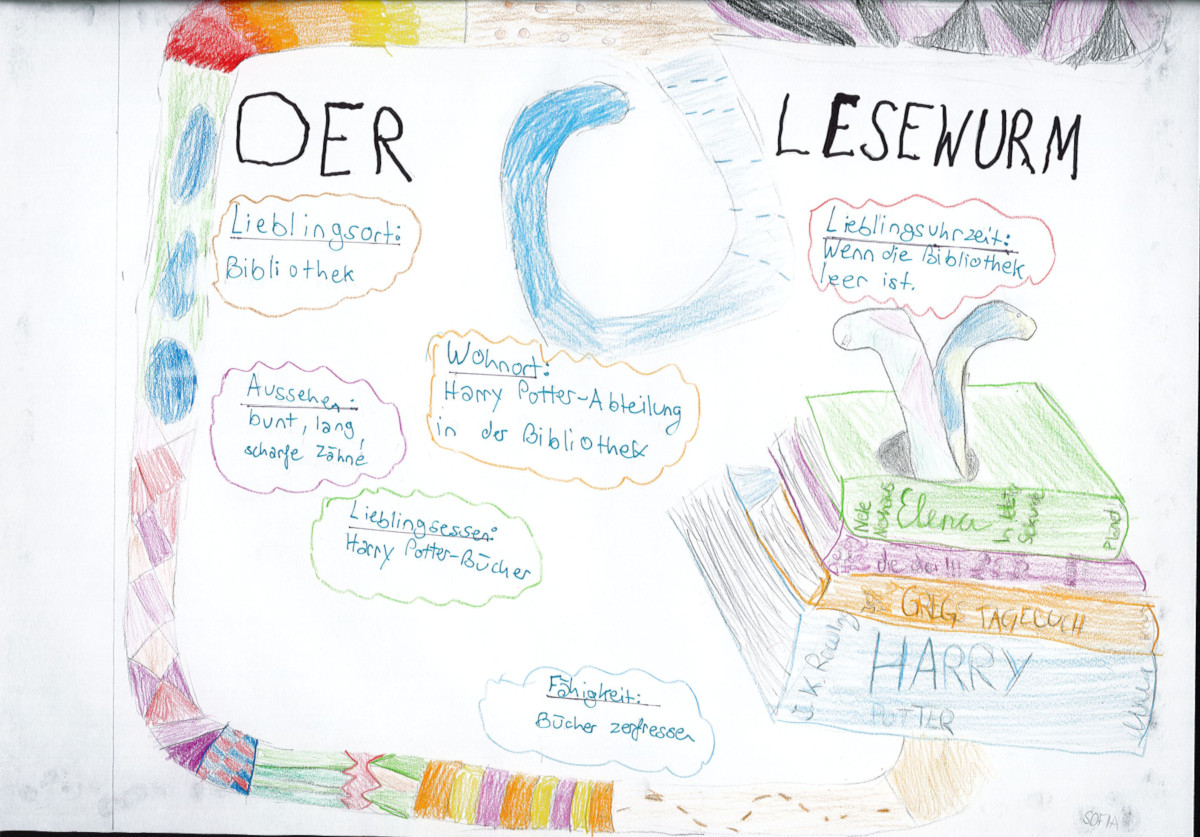 DER LESEWURM
Lieblingsort:
Bibliothek
Lieblingsuhrzeit:
Wenn die Bibliothek
leer ist.
Aussehen:
bunt, lang,
scharfe Zähne
Wohnort:
Harry Potter-Abteilung
in der Bibliothek
Lieblingsessen:
Harry Potter-Bücher
Fähigkeit:
Bücher zerfressen
Nele
Neuhaus
Elena
In letzter
Sekunde
Planet
die drei !!!
GREGS TAGEBUCH
J. K. Rowling
HARRY
POTTER
SOFIA